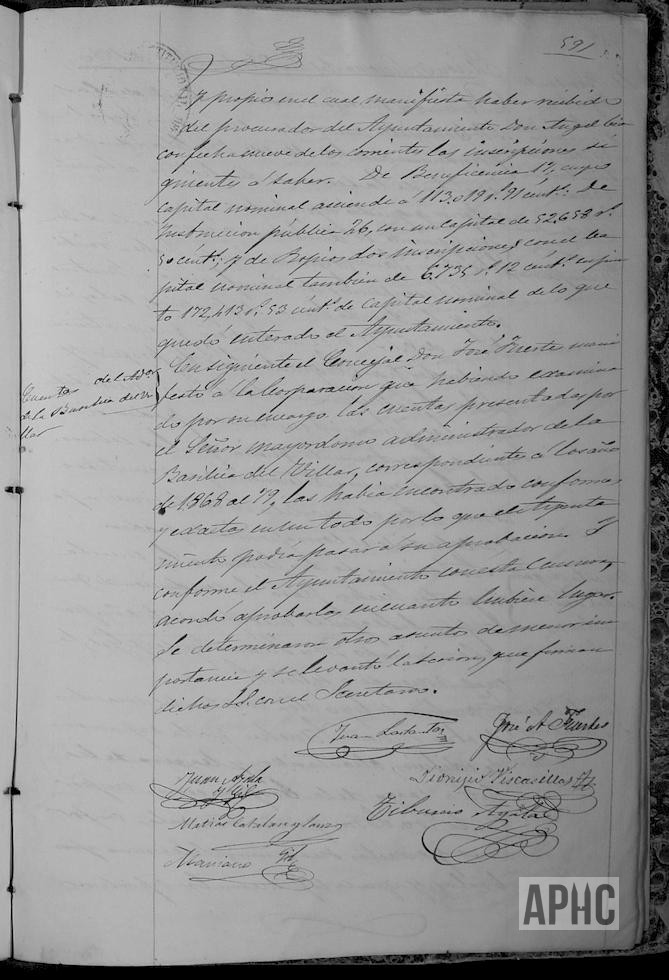 591
y propios en el cual manifiesta haber recibido
del procurador del Ayuntamiento Don Angel
con fecha nueve de los corrientes las inscripciones si
guientes á saber. De Beneficencia 17, cuyo
capital nominal asciende á 113.019 r.s 91 cént.s De
Instruccion pública 26, con un capital de 52.658 r.s
50 cént.s; y de Propios dos inscripciones con el ca
pital nominal también de 6.735 r.s 12 cént.s
to 172,413 r.s 53 cént.s de capital nominal de lo que
quedó enterado el Ayuntamiento.
Cuentas del Ador
de la Basilica del Vi
llar
En siguiente el Concejal Don José Fuerte mani
festó á la Corporacion que habiendo examina
do por su encargo las cuentas presentadas por
el Señor mayordomo administrador de la
Basilica del Villar, correspondientes á los años
de 1868 al 79, las habia encontrado conformes
y exactas en un todo por lo que el Ayunta
miento podia pasar á su aprobacion. Y
conforme el Ayuntamiento con esta
acordó aprobarlas en cuanto hubiere lugar.
Se determinaron otros asuntos de menor im
portancia y se levantó la sesion, que firman
dichos SS. con el Secretario.
Juan
José A. Fuertes
Juan
y Gil
Dionisio Viscasillas
Matias Catalan y
Tiburcio
Mariano Gil
APHC